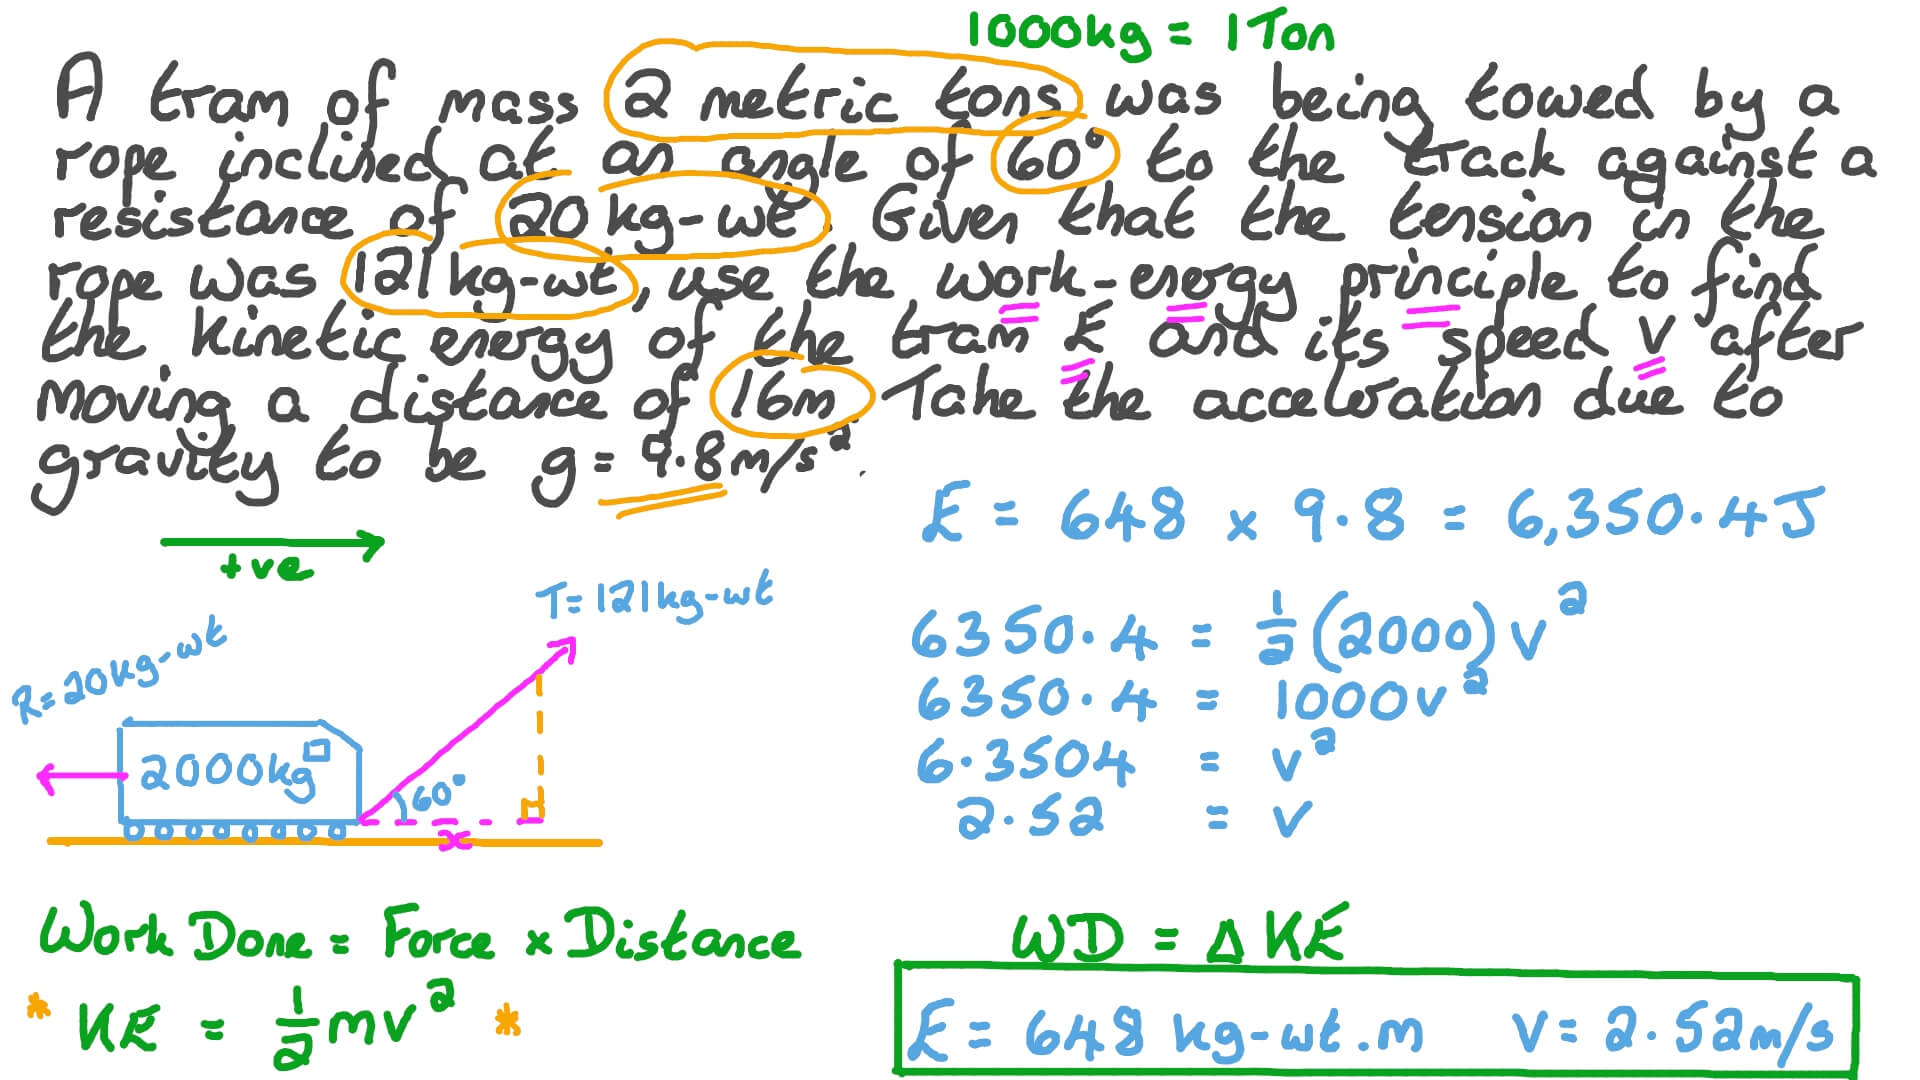 1000kg = 1Ton
A tram of mass 2 metric tons was being towed by a
rope inclined at an angle of 60° to the track against a
resistance of 20 kg-wt. Given that the tension in the
rope was 121kg-wt, use the work-energy principle to find
the kinetic energy of the tram E and its speed V after
moving a distance of 16m. Take the acceleration due to
gravity to be g = 9.8m/s².
+ve
T=121kg-wt
R=20kg-wt
2000kg
60°
x
Work Done = Force x Distance
* KE = ½mv² *
E = 648 x 9.8 = 6,350.4J
6350.4 = ½(2000)v²
6350.4 = 1000v²
6.3504 = v²
2.52 = v
WD = Δ KE
E = 648 kg-wt.m V = 2.52m/s